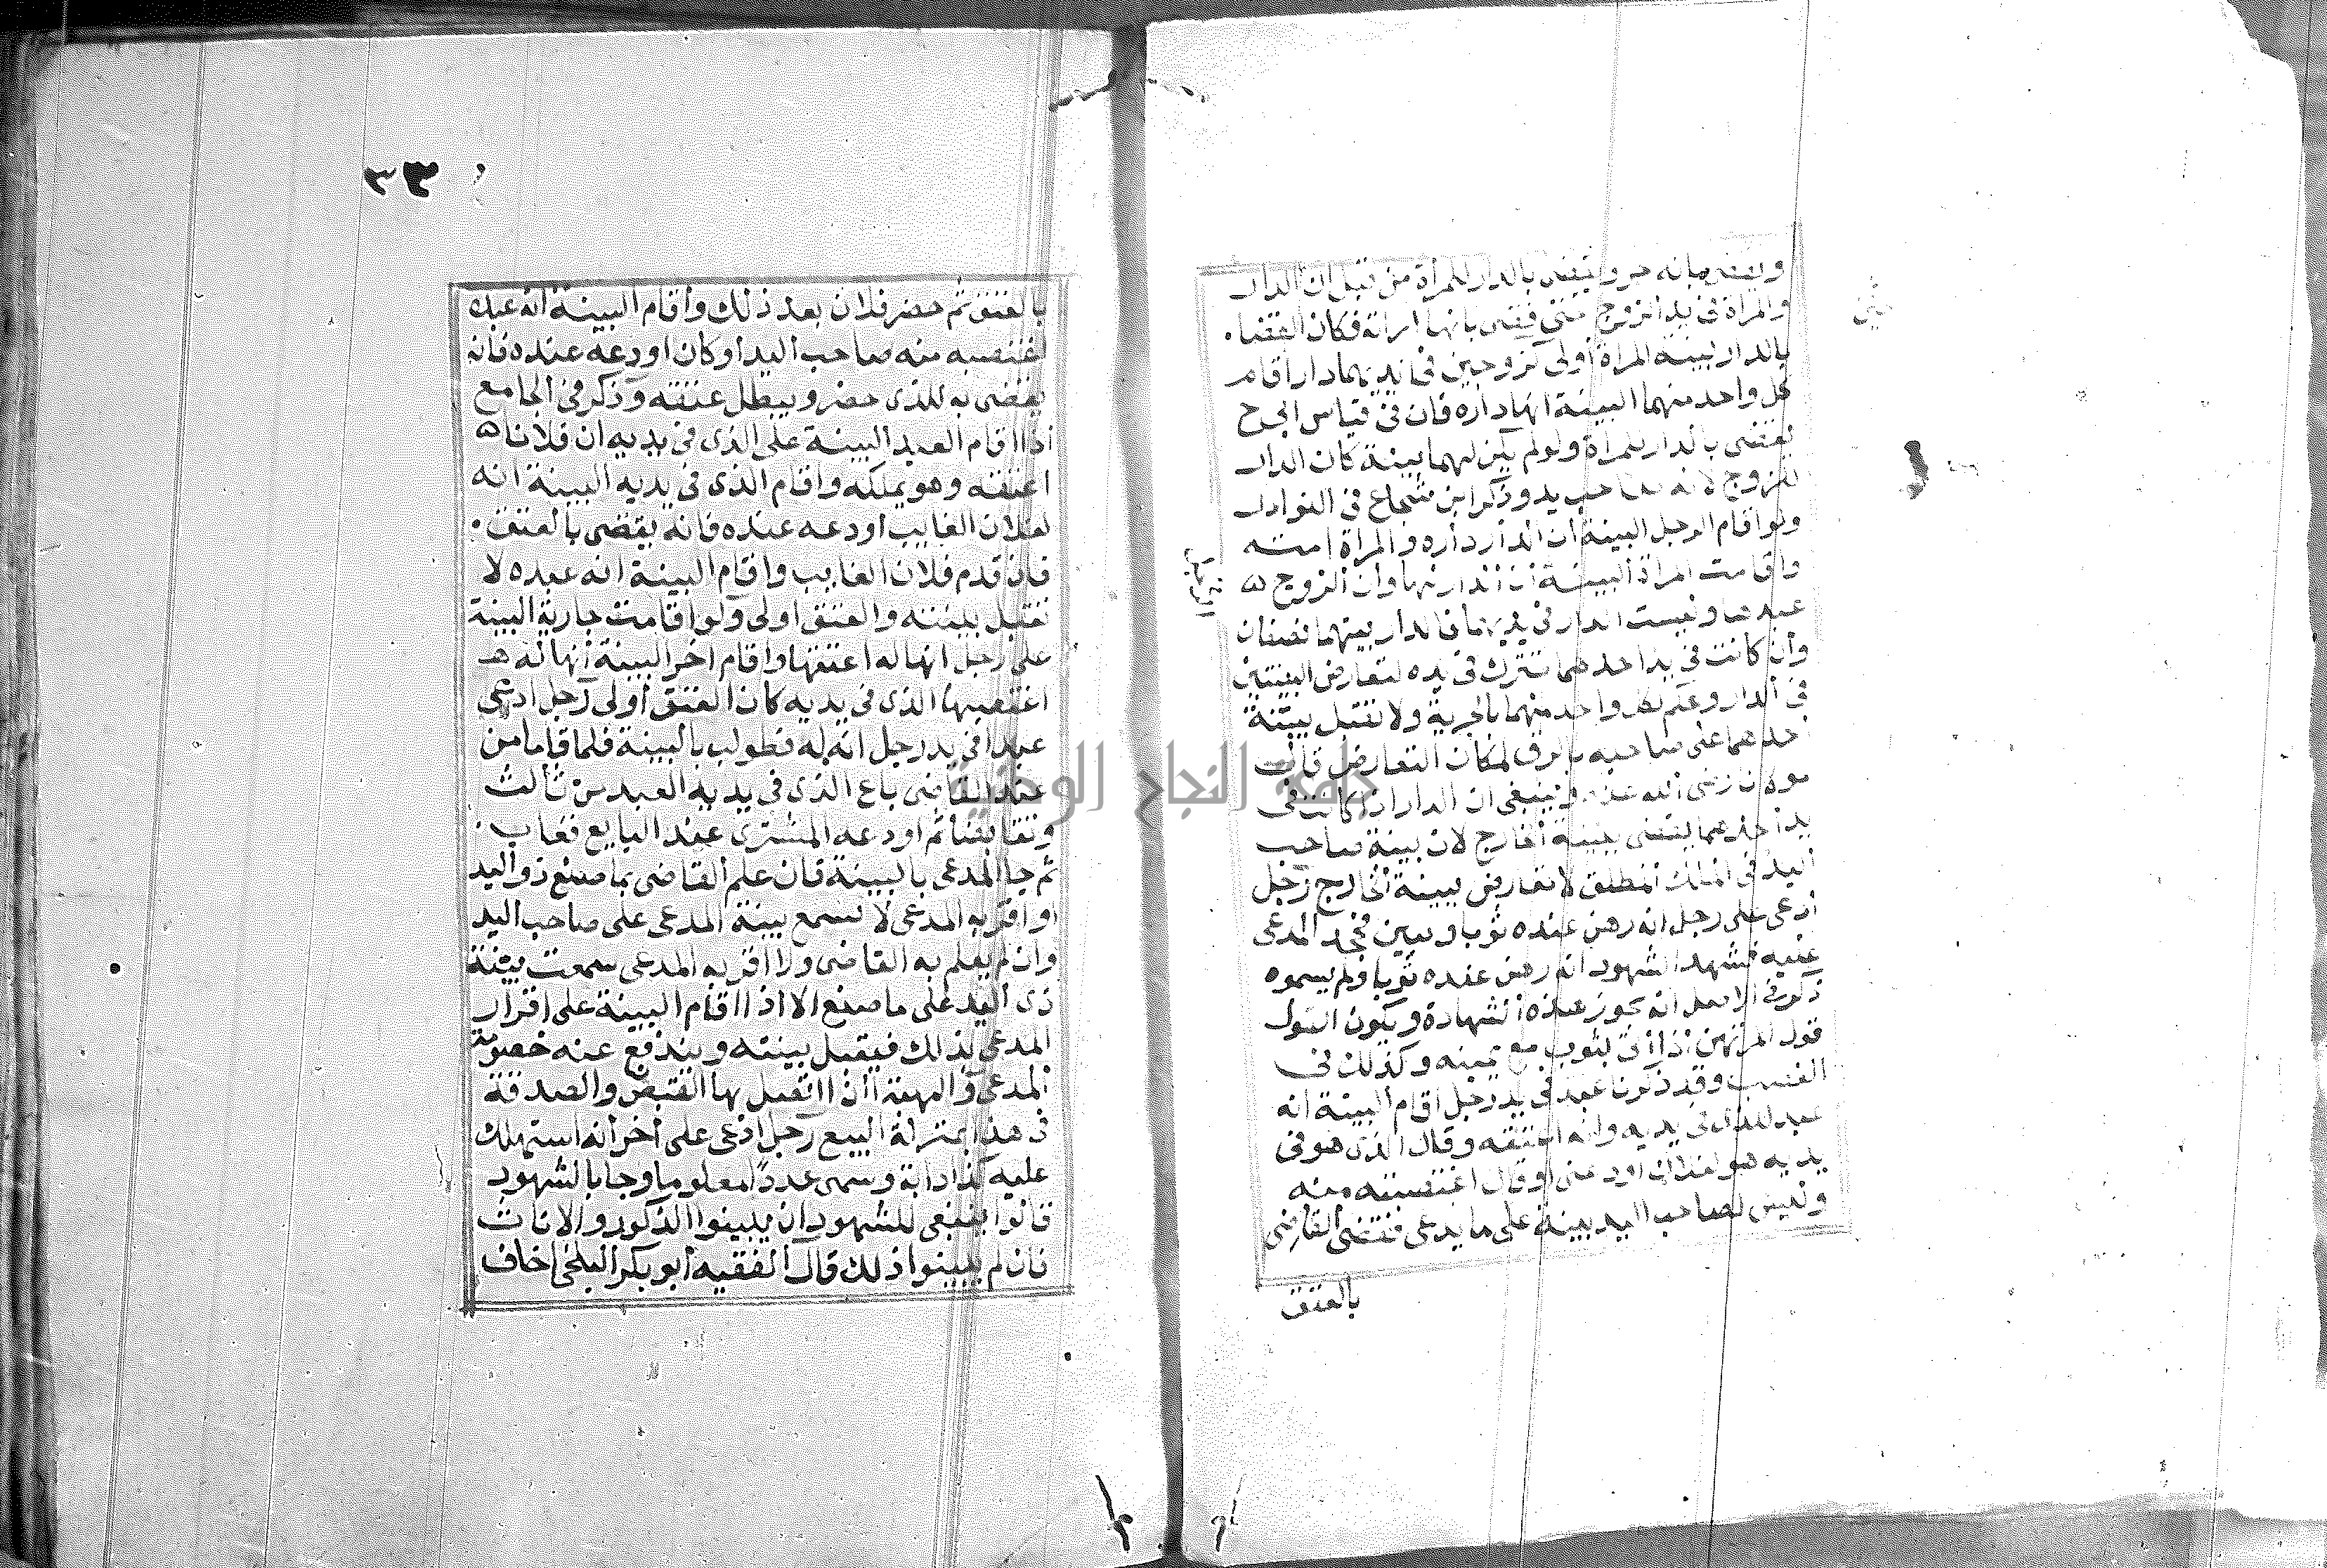 ويقضى بانه حر ويقضى بالدار للمرأة من قبل ان الدار
والمرأة فى يد الزوج متى قضى بانها امراته فكان القضاء
بالدار ببينة المرأة أولى كزوجين فى ايديهما دار أقام
كل واحد منهما البينة انها داره فان فى قياس
يقضى بالدار للمرأة ولو لم يكن لهما بينة كان الدار
للزوج لانه صاحب يد وذكر ابن شجاع فى النوادر
ولو اقام الرجل البينة أن الدار داره والمرأة امته
واقامت المراة البينة أن الدار لها وأن الزوج
عبدها وليست الدار فى يديهما فالدار بينهما نصفان
وأن كانت فى يد احدهما تترك فى يده لتعارض البينتين
فى الدار وحكم لكل واحد منهما بالحرية ولا تقبل بينة
احدهما على صاحبه بالرق لمكان التعارض قال
مولانا رضى الله عنه وينبغى ان الدار اذا كانت فى
يد أحدهما يقضى ببينة الخارج لان بينة صاحب
اليد فى الملك المطلق لا تعارض ببينة الخارج رجل
أدعى على رجل انه رهن عنده ثوبا وبين فجحد المدعى
عليه فشهد الشهود انه رهن عنده ثوبا ولم يسموه
ذكر فى الاصل انه يجوز هذه الشهادة ويكون القول
قول المرتهن أذا أتى بثوب مع يمينه وكذلك فى
الغصب وقد ذكرنا عبد فى يد رجل اقام البينة انه
عبد للذى فى يديه وانه اعتقه وقال الذى هو فى
يديه هو لفلان اودعنى او قال اغتصبته منه
وليس لصاحب اليد بينة على ما يدعى فقضى القاضى
بالعتق
بالعتق ثم حضر فلان بعد ذلك وأقام البينة أنه عبده
اغتصبه منه صاحب اليد أو كان اودعه عنده فانه
يقضى به للذى حضر ويبطل عتقه وذكر فى الجامع
اذا اقام العبد البينة على الذى فى يديه ان فلانا
اعتقه وهو يملكه واقام الذى فى يديه البينة انه
لفلان الغايب أودعه عنده فانه يقضى بالعتق
فان قدم فلان الغايب واقام البينة انه عبده لا
تقبل بينته والعتق اولى ولو اقامت جارية البينة
على رجل انها له اعتقها واقام اخر البينة أنها له
اغتصبها الذى فى يديه كان العتق أولى رجل ادعى
عبدا فى يد رجل انه له فطولب بالبينة فلما قاما من
عند القاضى باع الذى فى يديه العبد من ثالث
وتقابضا ثم اودعه المشترى عند البايع فغاب
ثم جا المدعى بالبينة فان علم القاضى بما صنع ذو اليد
او اقر به المدعى لا تسمع بينة المدعى على صاحب اليد
وان لم يعلم به القاضى ولا اقر به المدعى سمعت بينة
ذى اليد على ما صنع الا اذا اقام البينة على اقرار
المدعى بذلك فيقبل بينته ويندفع عنه خصومة
المدعى والهبة اذا اتصل بها القبض والصدقة
فى هذا بمنزلة البيع رجل ادعى على أخر أنه استهلك
عليه كذا دابة وسمى عددًا معلوما وجا بالشهود
قالوا ينبغى للشهود ان يبينوا الذكور والاناث
فان لم يبينوا ذلك قال الفقيه أبو بكر البلخى اخاف
جامعة النجاح الوطنية